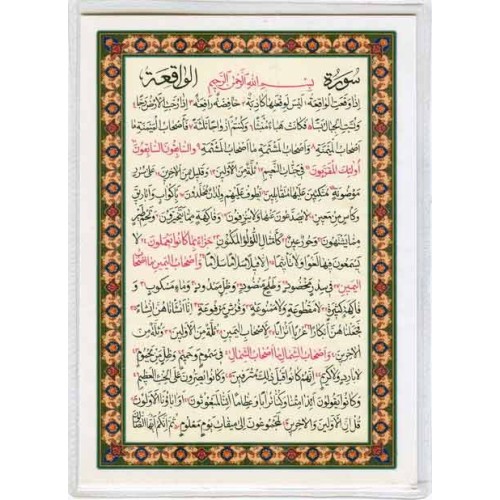 سورة بسم الله الرحمن الرحيم الواقعة
إذا وقعت الواقعة ١ ليس لوقعتها كاذبة ٢ خافضة رافعة ٣ إذا رجت الأرض رجا ٤
وبست الجبال بسا ٥ فكانت هباء منبثا ٦ وكنتم أزواجا ثلثة ٧ فأصحاب الميمنة ما
أصحاب الميمنة ٨ وأصحاب المشئمة ما أصحاب المشئمة ٩ والسابقون السابقون ١٠
أولئك المقربون ١١ في جنات النعيم ١٢ ثلة من الأولين ١٣ وقليل من الآخرين ١٤ على سرر
موضونة ١٥ متكئين عليها متقابلين ١٦ يطوف عليهم ولدان مخلدون ١٧ بأكواب وأباريق
وكأس من معين ١٨ لا يصدعون عنها ولا ينزفون ١٩ وفاكهة مما يتخيرون ٢٠ ولحم طير
مما يشتهون ٢١ وحور عين ٢٢ كأمثال اللؤلؤ المكنون ٢٣ جزاء بما كانوا يعملون ٢٤ لا
يسمعون فيها لغوا ولا تأثيما ٢٥ إلا قيلا سلاما سلاما ٢٦ وأصحاب اليمين ما أصحاب
اليمين ٢٧ في سدر مخضود ٢٨ وطلح منضود ٢٩ وظل ممدود ٣٠ وماء مسكوب ٣١ و
فاكهة كثيرة ٣٢ لا مقطوعة ولا ممنوعة ٣٣ وفرش مرفوعة ٣٤ إنا أنشأناهن إنشاء ٣٥
فجعلناهن أبكارا ٣٦ عربا أترابا ٣٧ لأصحاب اليمين ٣٨ ثلة من الأولين ٣٩ وثلة من
الآخرين ٤٠ وأصحاب الشمال ما أصحاب الشمال ٤١ في سموم وحميم ٤٢ وظل من يحموم ٤٣
لا بارد ولا كريم ٤٤ إنهم كانوا قبل ذلك مترفين ٤٥ وكانوا يصرون على الحنث العظيم ٤٦
وكانوا يقولون أئذا متنا وكنا ترابا وعظاما أئنا لمبعوثون ٤٧ أو آباؤنا الأولون ٤٨
قل إن الأولين والآخرين ٤٩ لمجموعون إلى ميقات يوم معلوم ٥٠ ثم إنكم أيها الضالون